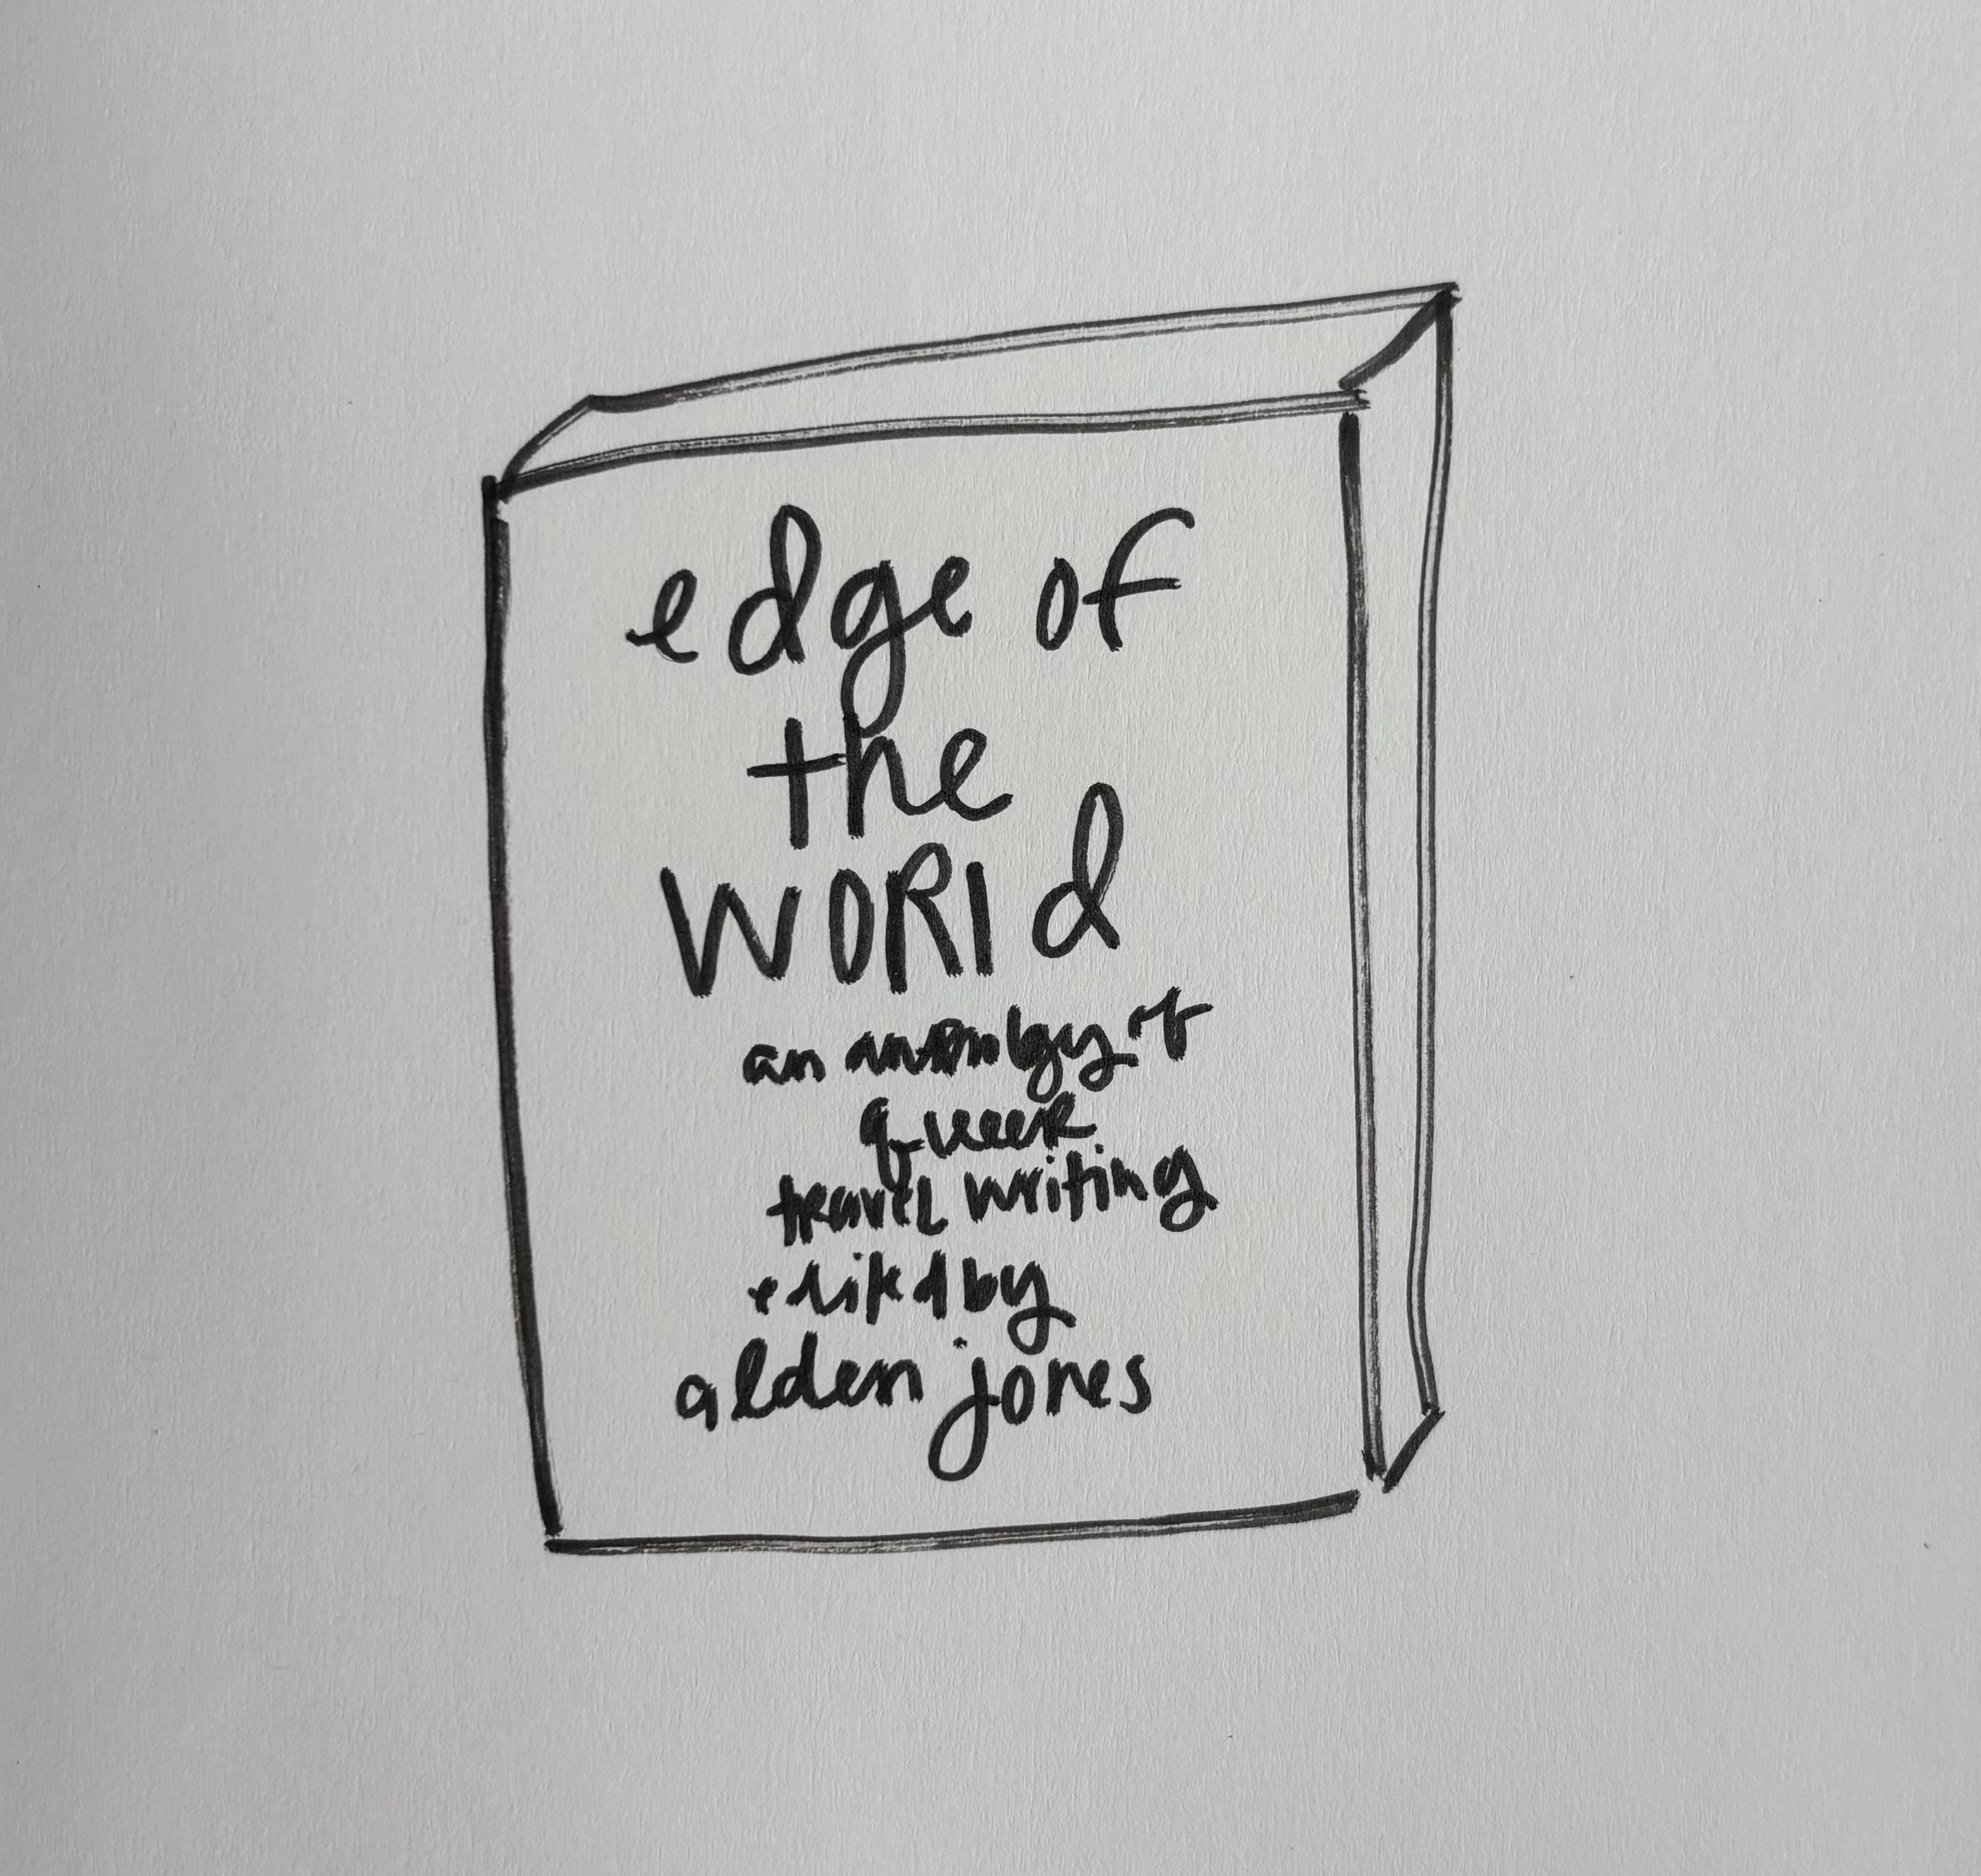 edge of
the
WORld
an anthology of
queer
travel writing
edited by
alden jones